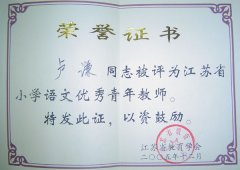 荣誉证书
卢濂 同志被评为江苏省
小学语文优秀青年教师。
特发此证，以资鼓励。
江苏省教育学会
二〇〇五年十二月